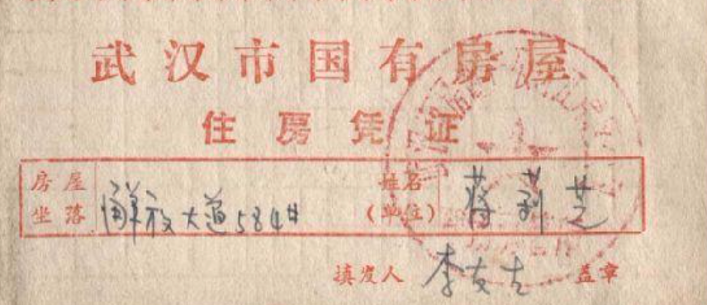 武汉市国有房屋
住房凭证
房屋坐落 解放大道584# 姓名(单位) 蒋莉芝
填发人 李友 盖章